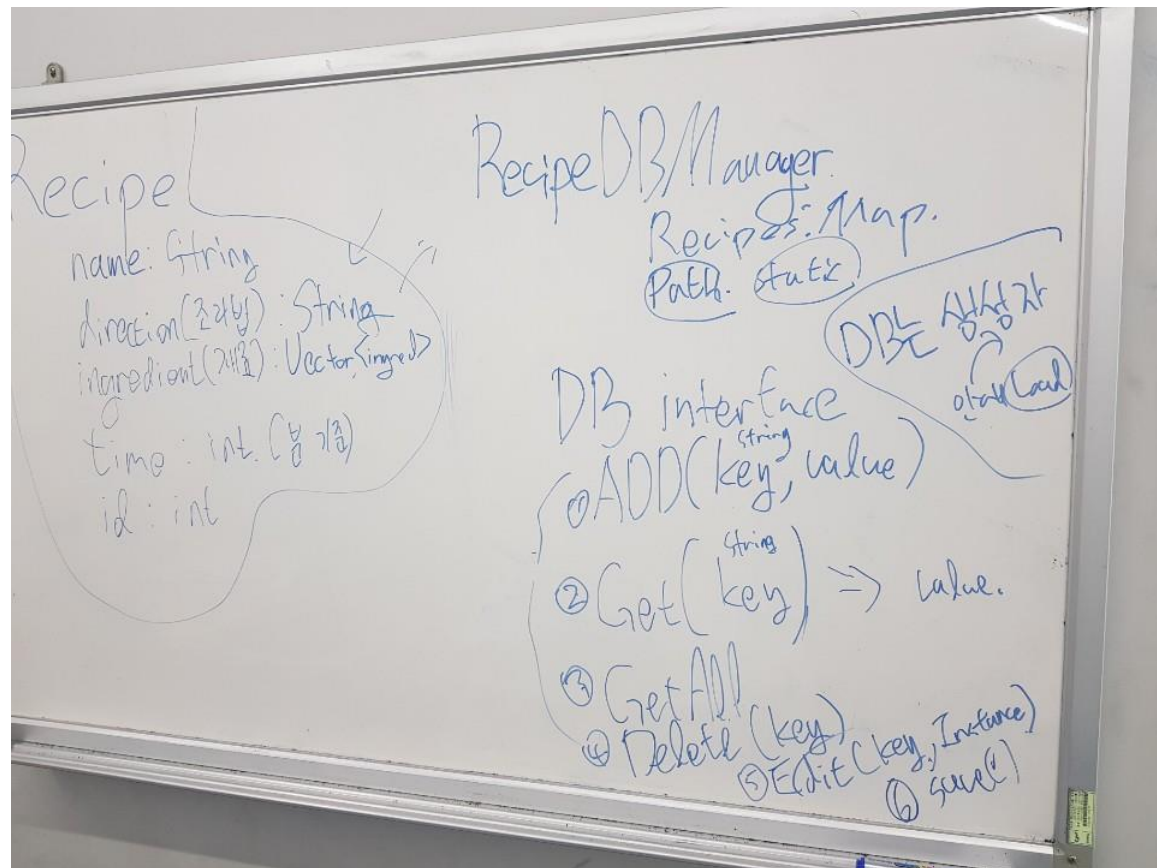 Recipe
name: String
direction(조리법): String
ingredient(재료): Vector<ingred>
time: int. (분 기준)
id: int
RecipeDBManager.
Recipes: Map.
Path. static
DB는 생성자
에서 Load
DB interface
① ADD(key, value)
String
② Get(key) => value.
String
③ GetAll
④ Delete(key)
⑤ Edit(key, Instance)
⑥ save()